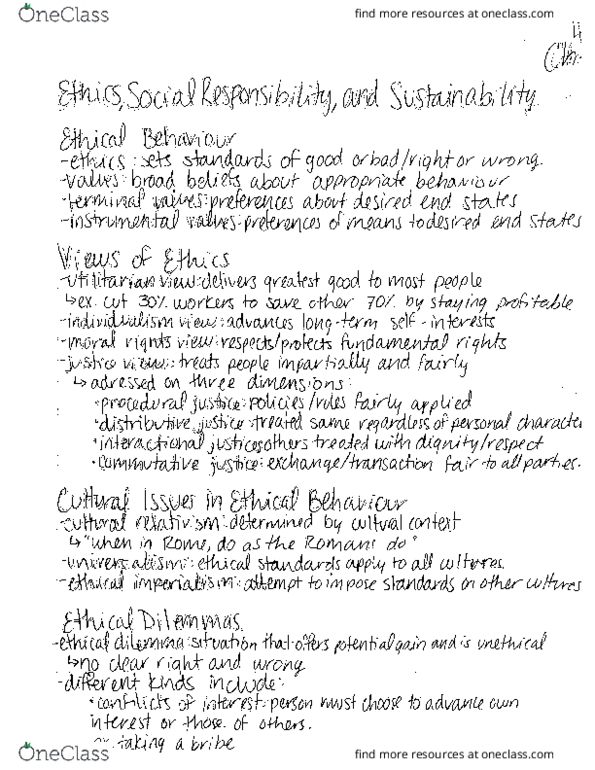 OneClass
find more resources at oneclass.com
4
Ch.
Ethics, Social Responsibility, and Sustainability
Ethical Behaviour
-ethics: sets standards of good or bad/right or wrong.
-values: broad beliefs about appropriate behaviour
-terminal values: preferences about desired end states
-instrumental values: preferences of means to desired end states
Views of Ethics
-utilitarian view: delivers greatest good to most people
↳ex. cut 30% workers to save other 70% by staying profitable
-individualism view: advances long-term self-interests
-moral rights view: respects/protects fundamental rights
-justice view: treats people impartially and fairly
↳adressed on three dimensions:
•procedural justice: policies/rules fairly applied
•distributive justice: treated same regardless of personal character
•interactional justice: others treated with dignity/respect
•commutative justice: exchange/transaction fair to all parties.
Cultural Issues in Ethical Behaviour
-cultural relativism: determined by cultural context
↳"when in Rome, do as the Romans do"
-universalism: ethical standards apply to all cultures.
-ethical imperialism: attempt to impose standards on other cultures
Ethical Dilemmas
-ethical dilemma: situation that offers potential gain and is unethical
↳no clear right and wrong
-different kinds include:
•conflicts of interest: person must choose to advance own
interest or those of others.
taking a bribe
OneClass
find more resources at oneclass.com